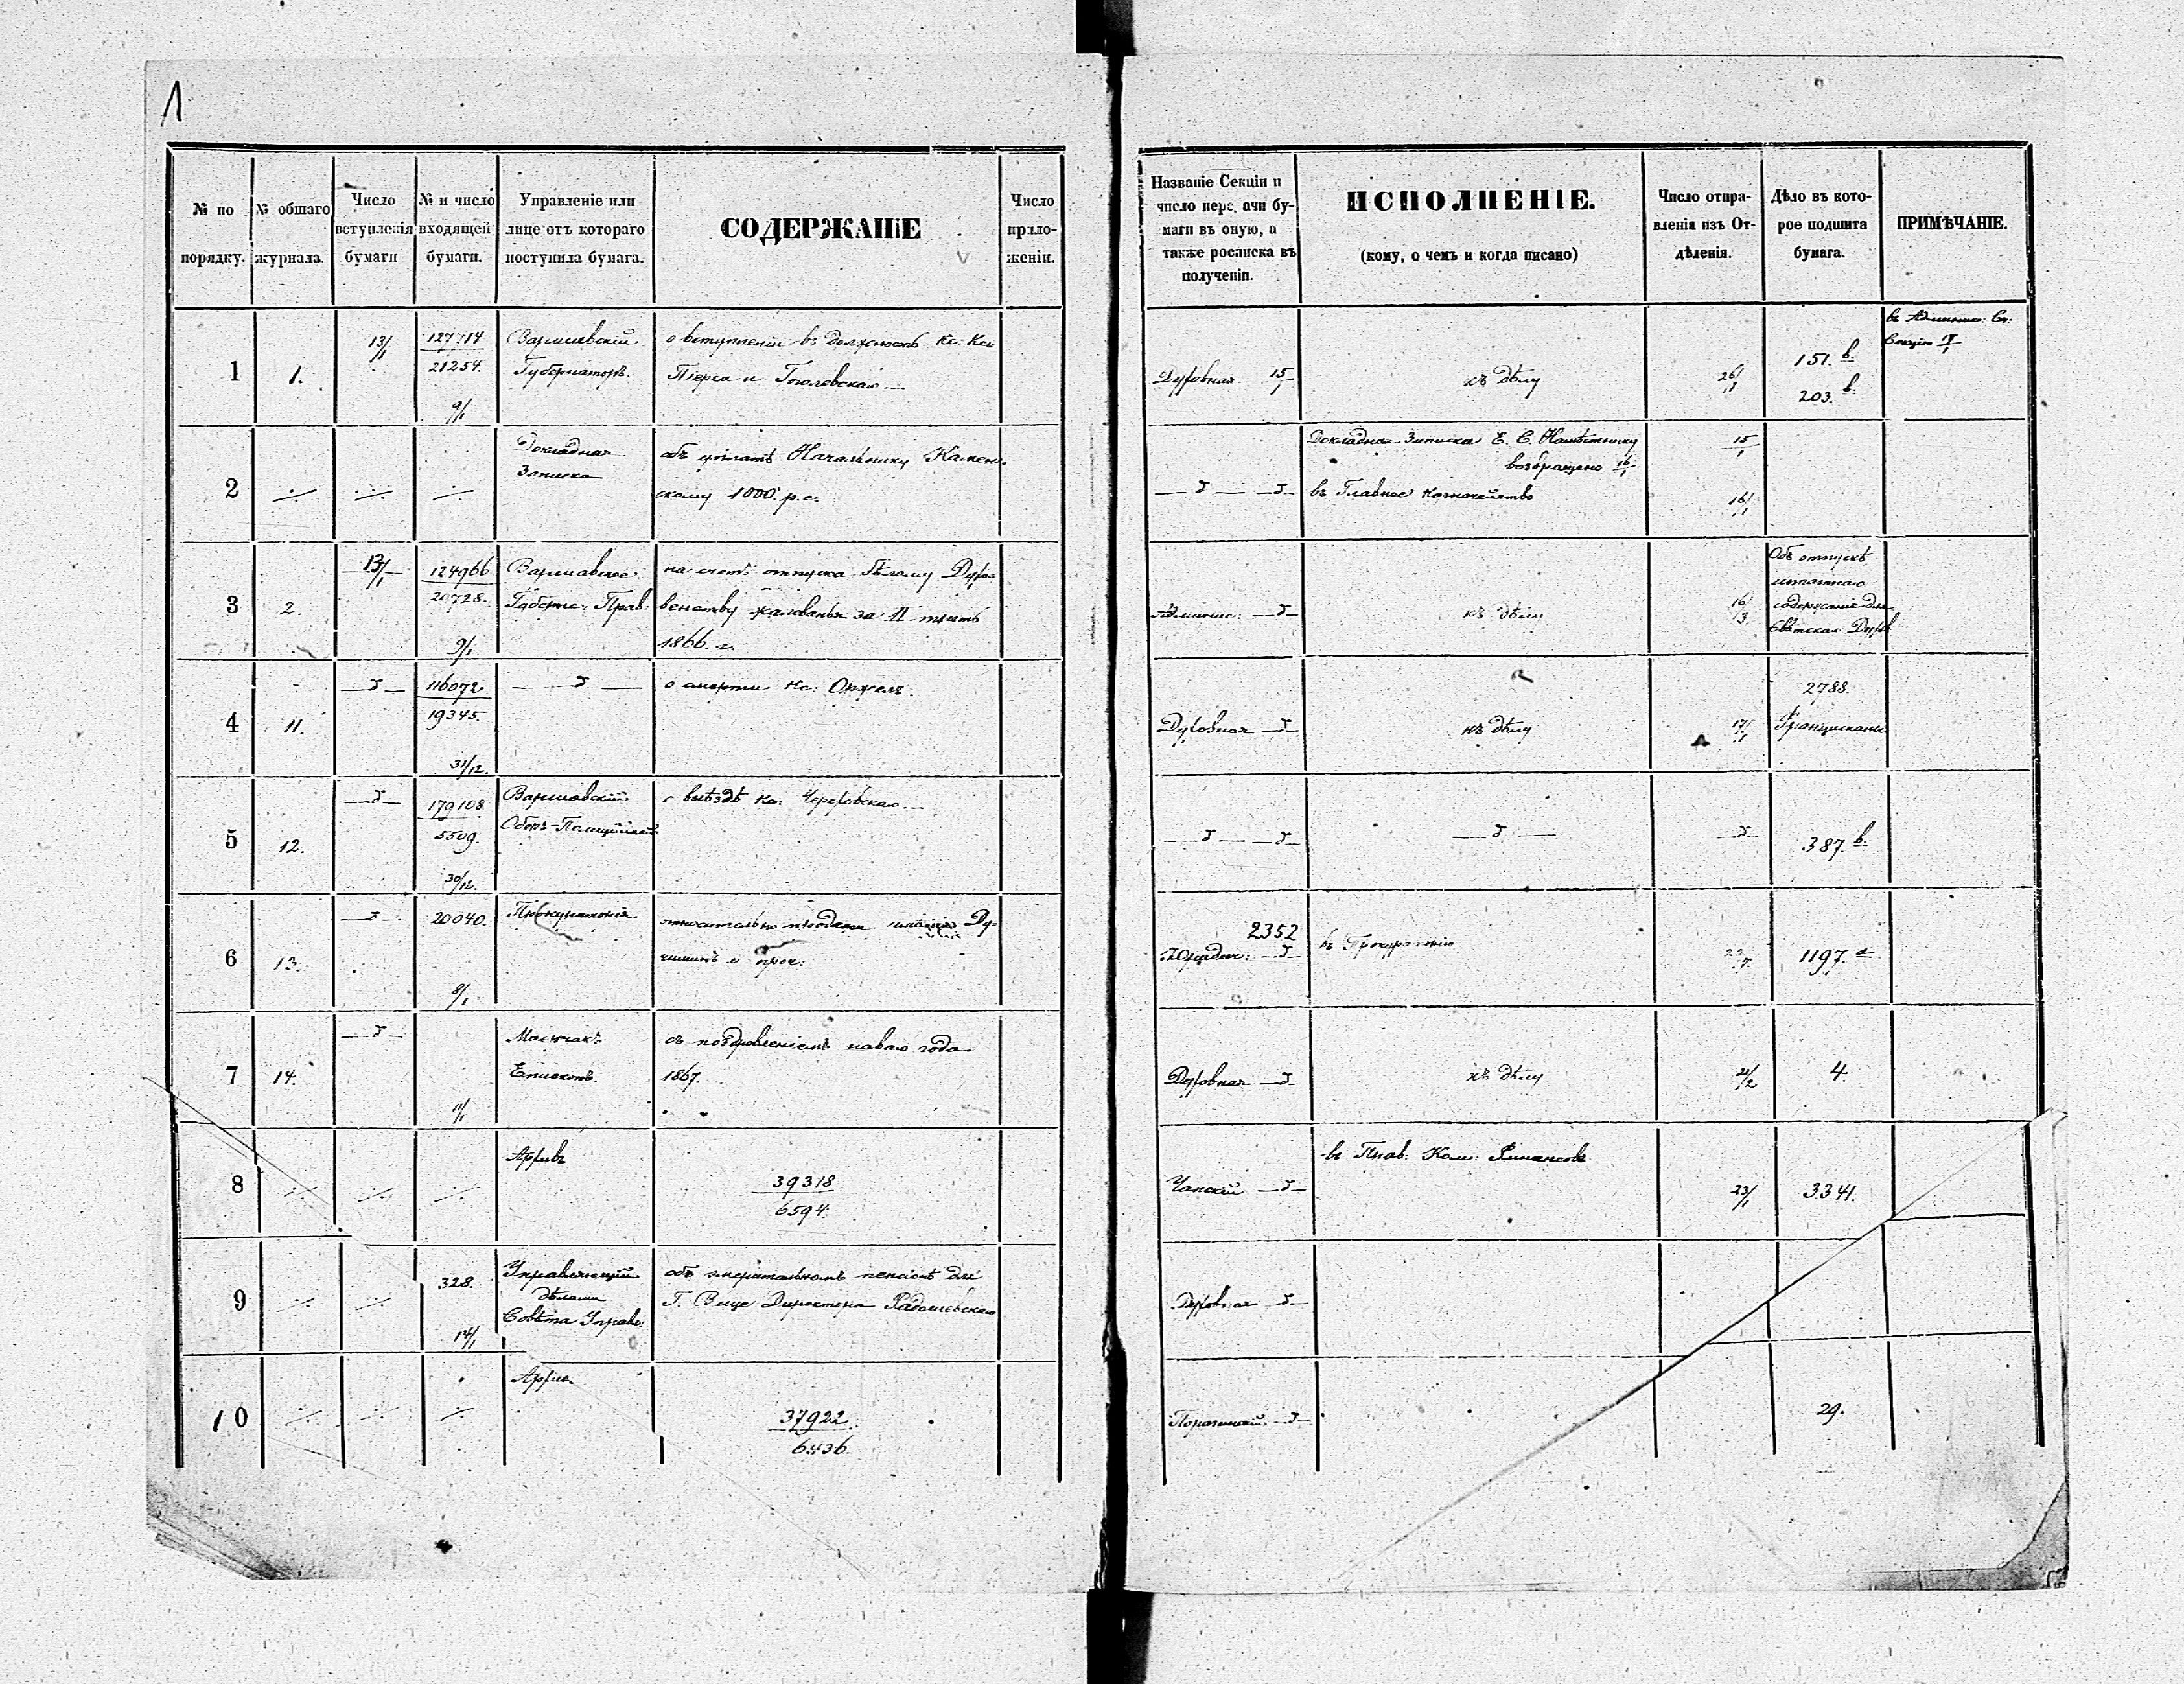 1
№ по порядку.
№ общаго журнала
Число вступленія бумаги
№ и число входящей бумаги.
Управленіе или лице отъ котораго поступила бумага.
СОДЕРЖАНІЕ
Число приложеніи.
Названіе Секціи и число передачи бумаги въ оную, а также росписка въ полученіи.
ИСПОЛНЕНІЕ.
(кому, о чемъ и когда писано)
Число отправленія изъ Отдѣленія.
Дѣло въ которое подшита бумага.
ПРИМѢЧАНІЕ.
1
1.
13/1
127714
21254.
9/1
Варшавскій
Губернаторъ.
о вступленіи въ должность Кс: Кс:
Піерса и
Духовная 15/1
къ дѣлу
26/1
151. в.
203. в.
2
Докладная
Записка
объ уплатѣ Начальнику Камен-
скому 1000. р. с.
Докладная Записка Е. С. Намѣстнику
возвращено 16/1
въ Главное Казначейство
15/1
16/1
3
2.
13/1
124966
20728.
9/1
Варшавское
Губерн: Прав:
на счетъ отпуска Бѣлому Духо-
венству жалованья за II треть
1866. г.
Админис:
къ дѣлу
16/3
Объ отпускѣ
штатнаго
содержанія для
Свѣтскаго Духов
4
11.
116072
19345.
31/12.
о смерти Кс:
Духовная
къ дѣлу
17/1
2788.
Францискане
5
12.
179108.
5509.
30/12.
Варшавскій
Оберъ-Полиціймей
о выѣздѣ Кс:
387. в.
6
13.
20040.
8/1
Прокураторія
относительно продажи имѣнія
и проч:
2352
Юридич:
въ Прокураторію
1197. а
7
14.
11/1
Епископъ.
съ поздравленіемъ новаго года
1867.
Духовная
къ дѣлу
21/2
4.
8
Архивъ
39318
6594.
Чапскій
въ Прав: Ком: Финансовъ
23/1
3341.
9
328.
14/1
Управляющій
дѣлами
Совѣта Управ:
объ эмеритальномъ пенсіонѣ для
Г. Вице Директора Радошевскаго
Духовная
10
Архив
37922.
6436.
29.